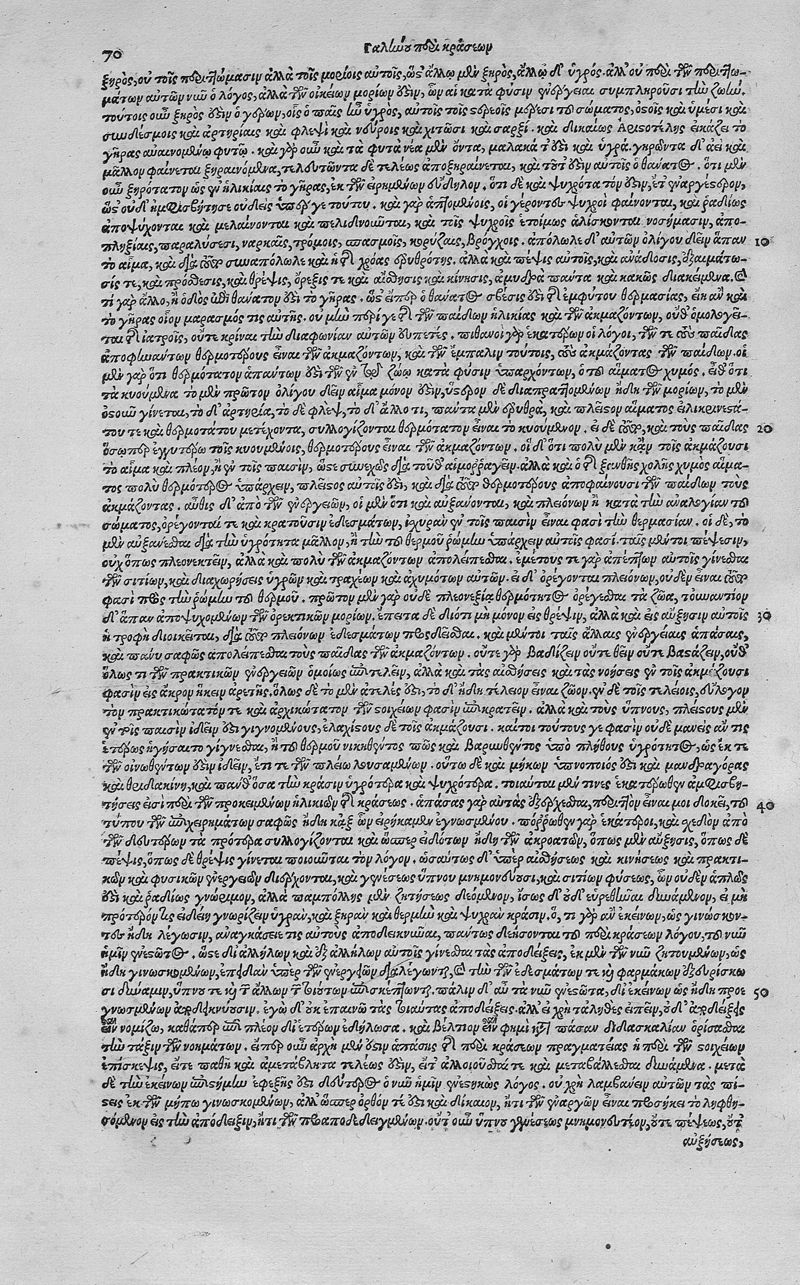 70 Γαλίωοῦ περὶ κράσεων
ξηρὸς, οὐ τοῖς περιττώμασιν ἀλλὰ τοῖς μορίοις αὐτοῖς, ὥς ἄλλῳ μὲν ξηρὸς, ἄλλῳ δ' ὑγρός. ἀλλ' οὐ περὶ τῶν περιττω-
μάτων αὐτῶν νῦν ὁ λόγος, ἀλλὰ τῶν οἰκείων μορίων ἐστὶν, ὧν αἱ κατὰ φύσιν ἐνέργειαι συμπληροῦσι τὴν ζωήν.
τούτοις οὖν ξηρὸς ἐστὶν ὁ γέρων, οἷς ὁ παῖς ἦν ὑγρὸς, αὐτοῖς τοῖς στερεοῖς μέρεσι τοῦ σώματος, ὀστοῖς καὶ ὑμέσι καὶ
συνδέσμοις καὶ ἀρτηρίαις καὶ φλεψὶ καὶ νεύροις καὶ χιτῶσι καὶ σαρξί. καὶ δικαίως Ἀριστοτέλης εἰκάζει τὸ
γῆρας αὐαινομένῳ φυτῷ. καὶ γὰρ οὖν καὶ τὰ φυτὰ νέα μὲν ὄντα, μαλακά τ' ἐστὶ καὶ ὑγρά. γηρῶντα δ' ἀεὶ καὶ
μᾶλλον φαίνεται ξηραινόμενα, τελευτῶντα δὲ τελέως ἀποξηραίνεται, καὶ τοῦτ' ἐστὶν αὐτοῖς ὁ θάνατος. ὅτι μὲν
οὖν ξηρότατον ὡς ἐν ἡλικίαις τὸ γῆρας, ἐκ τῶν εἰρημένων εὔδηλον. ὅτι δὲ καὶ ψυχρότατόν ἐστιν, ἔτ' ἐναργέστερον,
ὥς οὐδ' ἠμφισβήτησε οὐδεὶς ὑπέρ γε τούτου. καὶ γὰρ ἁπτομένοις, οἱ γέροντες ψυχροὶ φαίνονται, καὶ ῥᾳδίως
ἀποψύχονται καὶ μελαίνονται καὶ πελιδνοῦνται, καὶ τοῖς ψυχροῖς ἑτοίμως ἁλίσκονται νοσήμασιν, ἀπο-
πληξίαις, παραλύσεσι, νάρκαις, τρόμοις, σπασμοῖς, κορύζαις, βρόγχοις. ἀπόλωλε δ' αὐτῶν ὀλίγου δεῖν ἅπαν 10
τὸ αἷμα, καὶ διὰ τοῦτο συναπόλωλε καὶ ἡ τῆς χρόας ἐρυθρότης. ἀλλὰ καὶ πέψις αὐτοῖς, καὶ ἀνάδοσις, ἐξαιμάτω-
σίς τε, καὶ πρόσθεσις, καὶ θρέψις, ὄρεξίς τε καὶ αἴσθησις καὶ κίνησις, ἀμυδρὰ πάντα καὶ κακῶς διακείμενα. καὶ
τί γὰρ ἄλλο, ἢ ὁδὸς ἐπὶ θάνατόν ἐστι τὸ γῆρας. ὥς εἴπερ ὁ θάνατος σβέσις ἐστὶ τῆς ἐμφύτου θερμασίας, εἴη ἂν καὶ
τὸ γῆρας οἷον μαρασμός τις αὐτῆς. οὐ μὴν περί γε τῆς τῶν παίδων ἡλικίας καὶ τῶν ἀκμαζόντων, οὔθ' ὁμολογεῖ-
ται τοῖς ἰατροῖς, οὔτε κρῖναι τὴν διαφωνίαν αὐτῶν εὐπετές. πιθανοὶ γὰρ ἑκατέρων οἱ λόγοι, τῶν τε τοὺς παῖδας
ἀποφῃνάντων θερμοτέρους εἶναι τῶν ἀκμαζόντων, καὶ τῶν ἔμπαλιν τούτοις, τοὺς ἀκμάζοντας τῶν παίδων. οἱ
μὲν γὰρ ὅτι θερμότατον ἁπάντων ἐστὶ τῶν ἐν τῷ ζῴῳ κατὰ φύσιν ὑπαρχόντων, ὁ τοῦ αἵματος χυμός. εἶθ' ὅτι
τὰ κυούμενα τὸ μὲν πρῶτον ὀλίγου δεῖν αἷμα μόνον ἐστὶν, ὕστερον δὲ διαπραττομένων ἤδη τῶν μορίων, τὸ μὲν
ὀστοῦν γίνεται, τὸ δ' ἀρτηρία, τὸ δὲ φλὲψ, τὸ δ' ἄλλο τι, πάντα μὲν ἐρυθρὰ, καὶ πλεῖστον αἵματος εἰλικρινεστά-
του τε καὶ θερμοτάτου μετέχοντα, συλλογίζονται θερμότατον εἶναι τὸ κυούμενον. εἰ δὲ τοῦτο, καὶ τοὺς παῖδας 20
ὅσῳπερ ἐγγυτέρω τοῖς κυουμένοις, θερμοτέρους εἶναι τῶν ἀκμαζόντων. οἱ δ' ὅτι πολὺ μὲν κἀν τοῖς ἀκμάζουσι
τὸ αἷμα καὶ πλέον, ἢ ἐν τοῖς παισὶν, ὥστε συνεχῶς διὰ τοῦθ' αἱμορραγεῖν. ἀλλὰ καὶ ὁ τῆς ξανθῆς χολῆς χυμὸς αἵμα-
τος πολὺ θερμότερος ὑπάρχων, πλεῖστος αὐτοῖς ἐστι, καὶ διὰ τοῦτο θερμοτέρους ἀποφαίνουσι τῶν παίδων τοὺς
ἀκμάζοντας. αὖθις δ' ἀπὸ τῶν ἐνεργειῶν, οἱ μὲν ὅτι καὶ αὐξάνονται, καὶ πλειόνων ἢ κατὰ τὴν ἀναλογίαν τοῦ
σώματος, ὀρέγονταί τε καὶ κρατοῦσιν ἐδεσμάτων, ἰσχυρὰν ἐν τοῖς παισὶν εἶναί φασι τὴν θερμασίαν. οἱ δὲ, τὸ
μὲν αὐξάνεσθαι διὰ τὴν ὑγρότητα μᾶλλον, ἢ τὴν τοῦ θερμοῦ ῥώμην ὑπάρχειν αὐτοῖς φασί. ταῖς μέντοι πέψεσιν,
οὐχ ὅπως πλεονεκτεῖν, ἀλλὰ καὶ πολὺ τῶν ἀκμαζόντων ἀπολείπεσθαι. ἐμέτους τε γὰρ ἀπέπτων αὐτοῖς γίνεσθαι
τῶν σιτίων, καὶ διαχωρήσεις ὑγρῶν καὶ τραχέων καὶ ἀχυμότων αὐτῶν. εἰ δ' ὀρέγονται πλειόνων, οὐδὲν εἶναι τοῦτο
φασὶ πρὸς τὴν ῥώμην τοῦ θερμοῦ. πρῶτον μὲν γὰρ οὐδὲ πλεονεξίᾳ θερμότητος ὀρέγεσθαι τὰ ζῶα, τοὐναντίον
δ' ἅπαν ἀποψυχομένων τῶν ὀρεκτικῶν μορίων. ἔπειτα δὲ διότι μὴ μόνον εἰς θρέψιν, ἀλλὰ καὶ εἰς αὔξησιν αὐτοῖς 30
ἡ τροφὴ διοικεῖται, διὰ τοῦτο πλειόνων ἐδεσμάτων προσδεῖσθαι. καὶ μέντοι ταῖς ἄλλαις ἐνεργείαις ἁπάσαις,
καὶ πάνυ σαφῶς ἀπολείπεσθαι τοὺς παῖδας τῶν ἀκμαζόντων. οὔτε γὰρ βαδίζειν οὔτε θεῖν οὔτε βαστάζειν, οὔθ'
ὅλως τι τῶν πρακτικῶν ἐνεργειῶν ὁμοίως ἐπιτελεῖν, ἀλλὰ καὶ τὰς αἰσθήσεις καὶ τὰς νοήσεις ἐν τοῖς ἀκμάζουσι
φασὶν εἰς ἄκρον ἥκειν ἀρετῆς. ὅλως δὲ τὸ μὲν ἀτελὲς ἔτι, τὸ δ' ἤδη τέλειον εἶναι ζῶον. ἐν δὲ τοῖς τελείοις, εὔλογον
τὸν πρακτικώτατόν τε καὶ ἀρχικώτατον τῶν στοιχείων φασὶν ἐπικρατεῖν. ἀλλὰ καὶ τοὺς ὕπνους, πλείστους μὲν
ἐν τοῖς παισὶν ἰδεῖν ἔστι γιγνομένους, ἐλαχίστους δὲ τοῖς ἀκμάζουσι. καίτοι τούτους γε φασὶν οὐδὲ μανεὶς ἄν τις
ἑτέρως ἡγήσαιτο γίγνεσθαι, ἢ τοῦ θερμοῦ νικηθέντος πως καὶ βαρυνθέντος ὑπὸ πλήθους ὑγρότητος, ὡς ἔκ τε
τῶν οἰνωθέντων ἔστιν ἰδεῖν, ἔτι τε τῶν πλείω λουσαμένων. οὕτω δὲ καὶ μήκων ὑπνοποιός ἐστι καὶ μανδραγόρας
καὶ θριδακίνη, καὶ πάνθ' ὅσα τὴν κρᾶσιν ὑγρότερα καὶ ψυχρότερα. τοιαῦται μέν τινες ἑκατέρωθεν ἀμφισβη-
τήσεις εἰσὶ περὶ τῶν προκειμένων ἡλικιῶν τῆς κράσεως. ἁπάσας γὰρ αὐτὰς ἐξέρχεσθαι, περιττὸν εἶναί μοι δοκεῖ, τοῦ 40
τύπου τῶν ἐπιχειρημάτων σαφῶς ἤδη κἀξ ὧν εἰρήκαμεν ἐγνωσμένου. πόρρωθεν γὰρ ἑκάτεροι, καὶ σχεδὸν ἀπὸ
τῶν δευτέρων τὰ πρότερα συλλογίζονται καὶ ὥσπερ εἰδότων ἤδη τῶν ἀκροατῶν, ὅπως μὲν αὔξησις, ὅπως δὲ
πέψις, ὅπως δὲ θρέψις γίνεται ποιοῦνται τὸν λόγον. ὡσαύτως δ' ὑπὲρ αἰσθήσεως καὶ κινήσεως καὶ πρακτι-
κῶν καὶ φυσικῶν ἐνεργειῶν διέρχονται, καὶ γενέσεως ὕπνου μνημονεύουσι, καὶ σιτίων φύσεως, ὧν οὐδὲν ἁπλῶς
ἐστὶ καὶ ῥᾳδίως γνώριμον, ἀλλὰ παμπόλλης μὲν ζητήσεως δεόμενον, ἴσως δ' οὐδ' εὑρεθῆναι δυνάμενον, εἰ μὴ
πρότερόν τις εἰδείη γνωρίζειν ὑγρὰν, καὶ ξηρὰν καὶ θερμὴν καὶ ψυχρὰν κρᾶσιν. ὅ, τι γὰρ ἂν ἐκείνων, ὡς γινώσκον-
τες ἤδη λέγωσιν, ἀναγκάσει τις αὐτοὺς ἀποδεικνύναι, πάντως δεήσονται τοῦ περὶ κράσεων λόγου, τοῦ νῦν
ἡμῖν ἐνεστῶτος. ὥστε δι' ἀλλήλων καὶ ἐξ ἀλλήλων αὐτοῖς γίνεσθαι τὰς ἀποδείξεις, ἐκ μὲν τῶν νῦν ζητουμένων, ὡς
ἤδη γινωσκομένων, ἐπειδὰν ὑπὲρ τῶν ἐνεργειῶν διαλέγωνται, καὶ τὴν τῶν ἐδεσμάτων τε καὶ φαρμάκων ἐξευρίσκω
σι δύναμιν, ὕπνου τε καὶ τῶν ἄλλων τῶν τοιούτων ἐπισκεπτῶνται. πάλιν δ' αὖ τὰ νῦν ἐνεστῶτα, δι' ἐκείνων ὡς ἤδη προε 50
γνωσμένων ἀποδεικνύουσιν. ἐγὼ δ' οὐκ ἐπαινῶ τὰς τοιαύτας ἀποδείξεις. ἀλλ' εἰ χρὴ τἀληθὲς εἰπεῖν, οὐδ' ἀποδείξεις
εἶναι νομίζω, καθάπερ ἐπὶ πλέον δι' ἑτέρων ἐδήλωσα. καὶ βέλτιον εἶναι φημὶ κατὰ πᾶσαν διδασκαλίαν ὁρίσασθαι
τὴν τάξιν τῶν νοημάτων. εἴπερ οὖν ἀρχὴ μέν ἐστιν ἁπάσης τῆς περὶ κράσεων πραγματείας ἡ περὶ τῶν στοιχείων
ἐπίσκεψις, εἴτε παθῆ καὶ ἀμετάβλητα τελέως ἐστὶν, εἴτ' ἀλλοιοῦσθαί τε καὶ μεταβάλλεσθαι δυνάμενα. μετὰ
δὲ τὴν ἐκείνων ἐπιστήμην ἐφεξῆς ἐστι δεύτερος ὁ νῦν ἡμῖν ἐνεστηκὼς λόγος. οὐ χρὴ λαμβάνειν αὐτῶν τὰς πί-
στεις ἐκ τῶν μήπω γινωσκομένων, ἀλλ' ὥσπερ ὀρθόν τε ἐστὶ καὶ δίκαιον, ἤ τι τῶν ἐναργῶν εἶναι προσήκει τὸ ληφθη-
σόμενον εἰς τὴν ἀπόδειξιν, ἤ τι τῶν προαποδεδειγμένων. οὔτ' οὖν ὕπνου γενέσεως μνημονευτέον, οὔτε πέψεως, οὔτ'
αὐξήσεως,